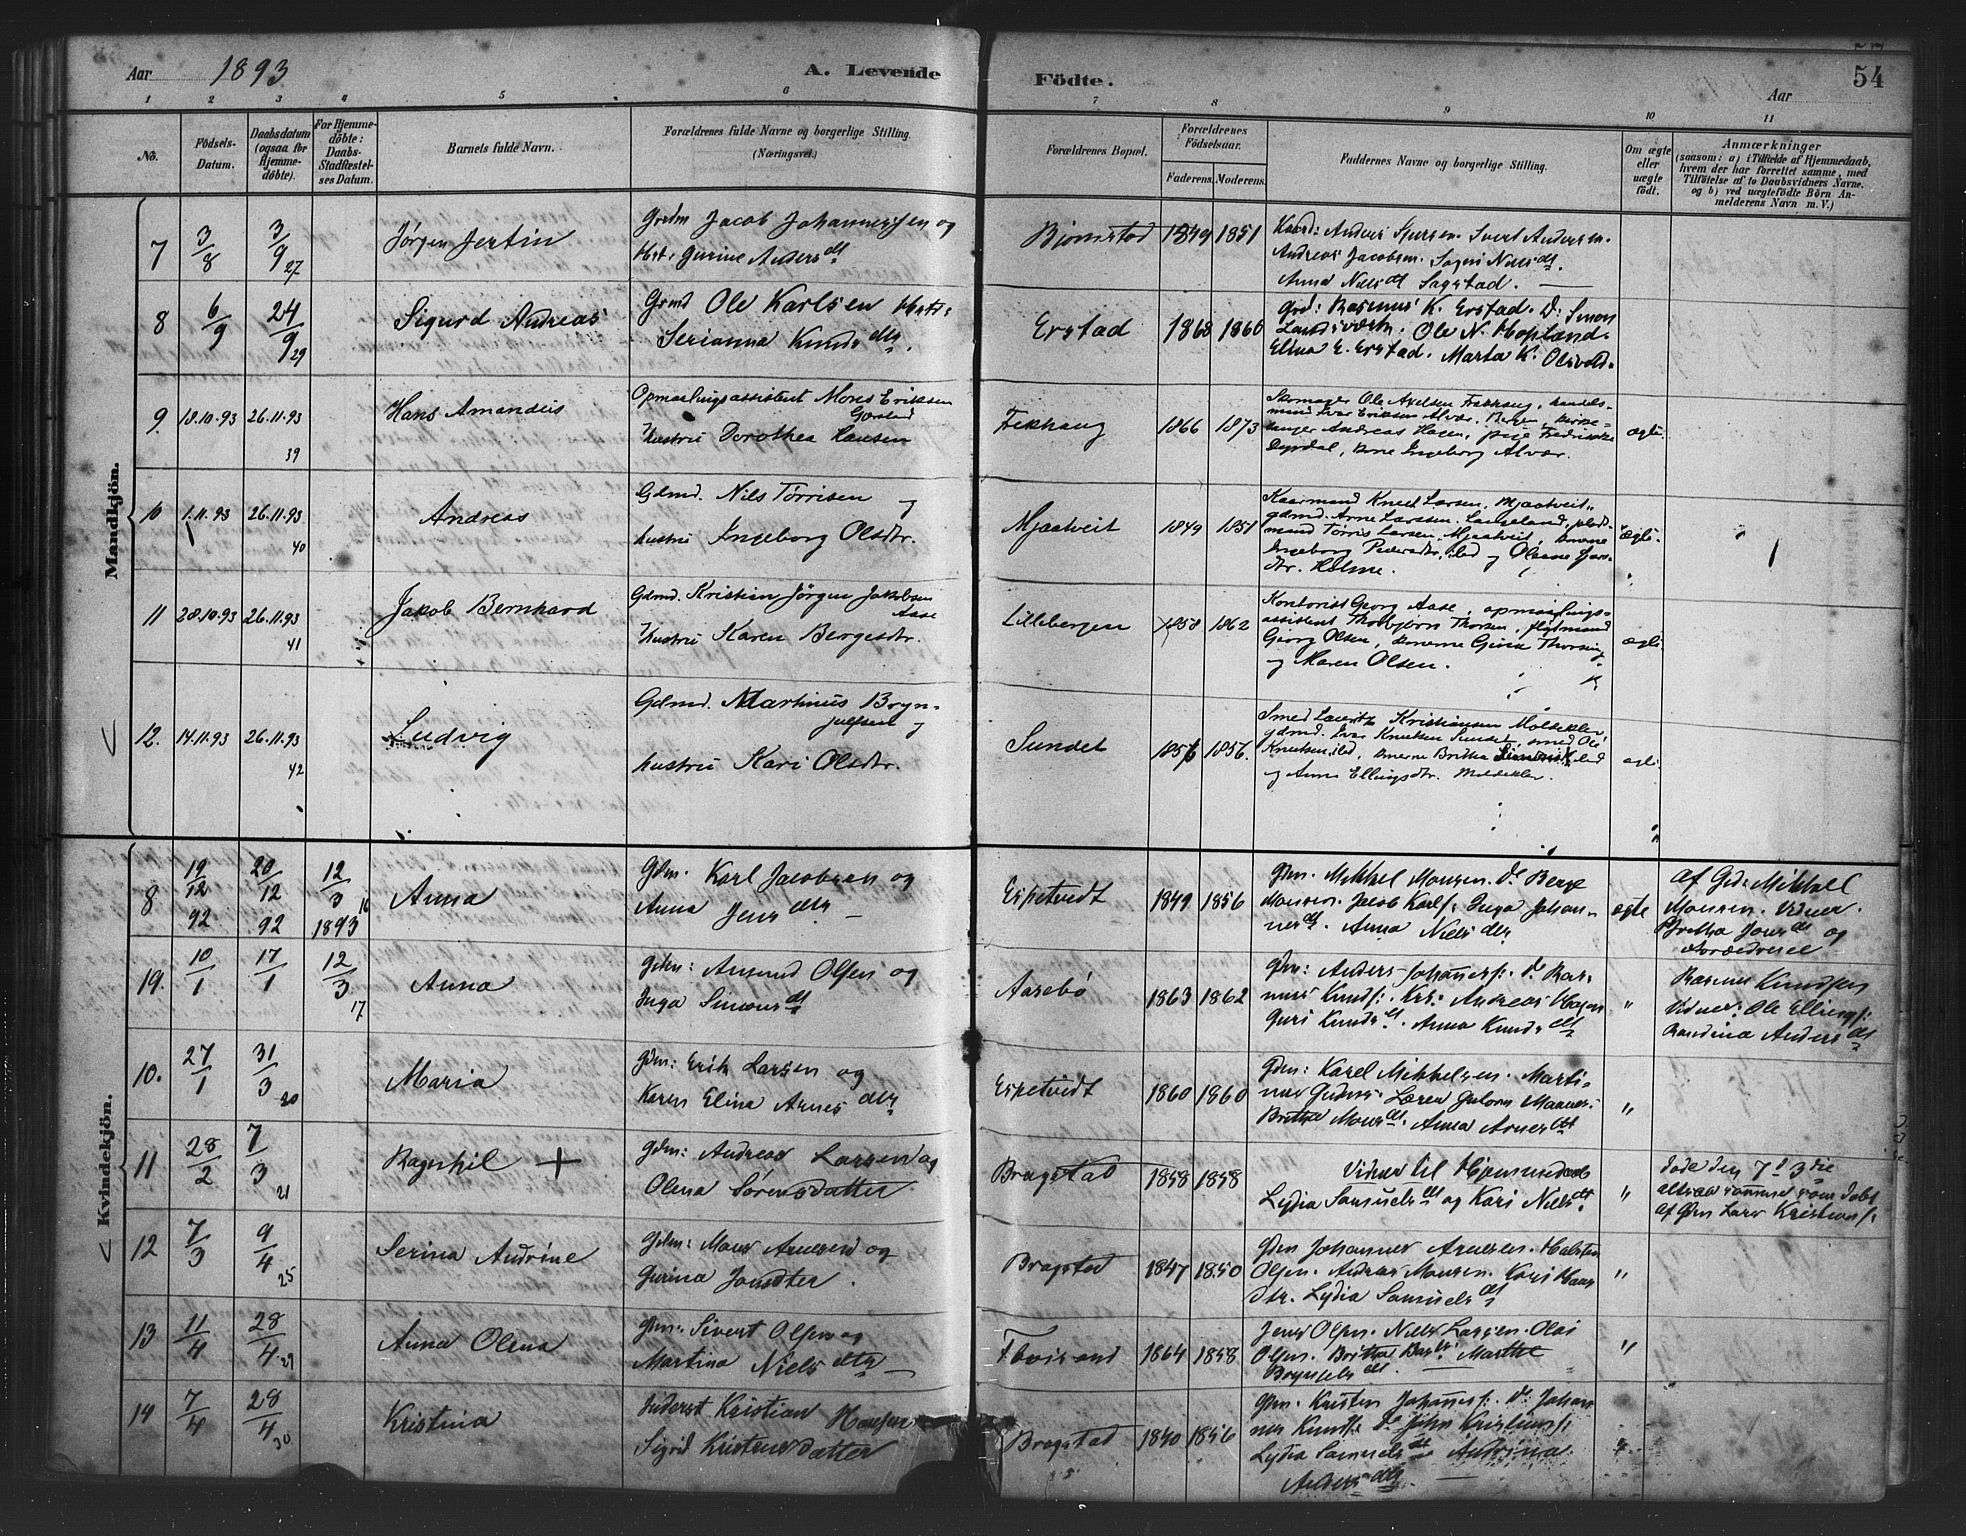 Aar 1893
A. Levende Födte.
54
Aar
1 2 3 4 5 6 7 8 9 10 11
No.
Födsels-Datum.
Daabsdatum (ogsaa for Hjemme-döbte).
For Hjemme-döbte: Daabs-Stadfæstel-ses Datum.
Barnets fulde Navn.
Forældrenes fulde Navne og borgerlige Stilling. (Næringsvei.)
Forældrenes Bopæl.
Forældrenes Födselsaar.
Faderens. Moderens.
Faddernes Navne og borgerlige Stilling.
Om ægte eller uægte födt.
Anmærkninger
(saasom: a) i Tilfælde af Hjemmedaab, hvem der har forrettet samme, med Tilföielse af to Daabsvidners Navne, og b) ved uægtefödte Börn Anmelderens Navn m. V.)
Mandkjön.
7 3/8 3/9 27 Jørgen Jertin
Grdm Jacob Johannessen og
Hst. Gurine Andersdt
Bjørnstad 1849 1851
Andreas Jacobsen.
Anna Nielsdt Sagstad.
8 6/9 24/9 29 Sigurd Andreas
Grmd Ole Karlsen
Serianna Knudsdtr.
Erstad 1868 1860
Grd: Rasmus K. Erstad. D: Simon
Ole N. Hopland.
Elina E. Erstad. Marta K. Olsvold.
9. 18.10.93 26.11.93 39 Hans Amandus
Opmaalingsassistent Mons Eriksen
Hustru Dorothea Hansen
Fekhaug 1866 1873
Skomager Ole Axelsen Fekhaug, handels-
mand Ivar Eriksen Alvær, Bergen, kirke-
sanger Andreas Hagen, pige Fredrikke
Dyrdal, kone Ingeborg Alvær.
ægte.
10 1.11.93 26.11.93 40 Andreas
Gdmd. Nils Tørrisen og
hustru Ingeborg Olsdtr.
Mjaatveit 1849 1851
Kaarmand Knut Larsen, Mjaatveit,
gdmd. Arne Larssen, Langeland,
mand Tørris Larsen, Mjaatveit, konerne
Ingeborg Pedersdtr, ibd og
dtr. Holme.
ægte.
11 28.10.93 26.11.93 41 Jakob Bernhard
Gdmd. Kristian Jørgen Jakobsen
Aase
Hustru Karen Bergesdtr.
Lillebergen 1858 1862
Kontorist Georg Aase, opmaalings-
assistent Thorbjørn Thorsen,
Georg Olsen, konerne
og Maren Olsen.
ægte.
12. 14.11.93 26.11.93 42 Ludvig
Gdmd. Martinus Bryn-
julfsen og
hustru Kari Olsdtr.
Sundet 1856 1856.
Smed Lauritz Kristiansen Moldekler,
gdmd. Ivar Knutsen Sundet, smed Ole
Knutsen, ibd, konerne Britha ibd
og Anna Ellingsdtr. Moldekler.
ægte.
Kvindekjön.
8 19/12 92 20/12 92 12/3 1893 16 Anna
Gdm. Karl Jacobsen og
Anna Jensdtr
Espetvedt 1849 1856
Gdm. Mikkel Monsen. D. Berge
Monsen. Jacob Karls: Inga Johan-
nesdt. Anna Nielsdtr
ægte
af Gd: Mikkel
Monsen. Vidner.
Britha Jonsdt og
Forældrene
19. 10/1 17/1 12/3 17 Anna
Gdm: Amund Olsen og
Inga Simonsdt
Aasebø 1863 1862
Gdm: Anders Johannesf: D. Ras-
mus Knudsf: Krs. Andreas Hagen
Guri Knudsdt. Anna Knudsdt
"
Rasmus Knudsen
Vidner: Ole Ellingsf:
Randina Andersdt
10. 27/1 31/3 20 Maria
Gdm: Erik Larsen og
Karen Elina Arnesdtr
Espetvedt 1860 1860
Gdm: Karel Mikkelsen. Marti-
Brithe Monsdt. Anna Arnesdt
"
11 28/2 7/3 21 Ragnhil +
Gdm: Andreas Larsen og
Olina Sørensdatter
Bragstad 1858 1858
Vidner til Hjemmedaab
Lydia Samuelsdt og Kari Nielsdt
"
døde den 7d 3die
altsaa samme som døbt
af Gdm Lars Kristiansf:
12 7/3 9/4 25 Serina Andrine
Gdm: Mons Arnesen og
Gurina Jonsdter.
Bragstad 1847 1850
Gdm Johannes Arnesen. Halsten
Olsen. Andreas Monsen. Kari Hans
dtr. Lydia Samuelsdt
"
13 11/4 28/4 29 Anna Olina
Gdm: Sivert Olsen og
Martina Nielsdtr
1864 1858
Jens Olsen. Niels Larsen. Olai
Olsen. Britha Marthe
Brynjelsdt
"
14 7/4 28/4 30 Kristina
Inderst Kristian Hansen
Sigrid Kristensdatter
Bragstad 1840 1856
Gdm. Kristen Johannesf: D: Johan
nes Knudsf: D. John Kristiansf:
Lydia Samuelsdt Andrina
Andersdtr